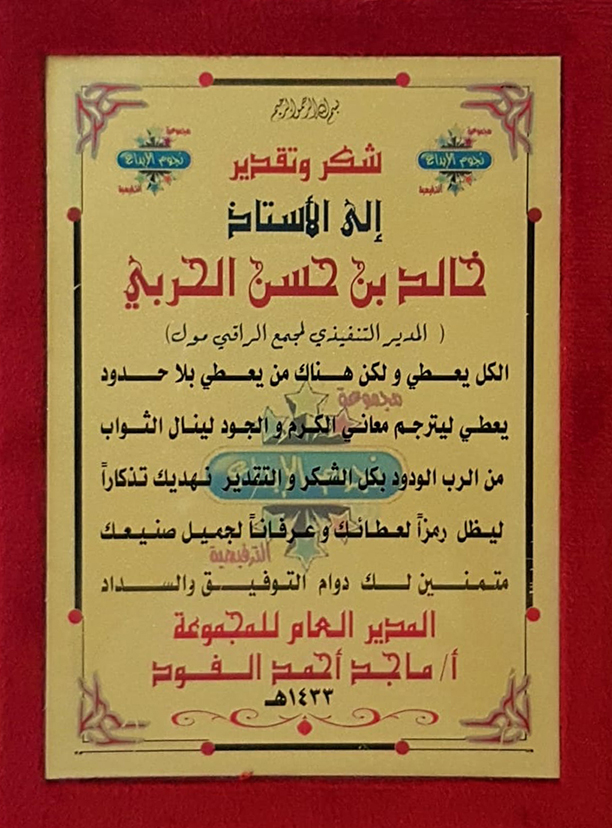 بسم الله الرحمن الرحيم
مجموعة
نجوم الإبداع
الترفيهية
مجموعة
نجوم الإبداع
الترفيهية
شكر وتقدير
إلى الأستاذ
خالد بن حسن الحربي
( المدير التنفيذي لمجمع الراقي مول)
الكل يعطي و لكن هناك من يعطي بلا حدود
يعطي ليترجم معاني الكرم و الجود لينال الثواب
من الرب الودود بكل الشكر و التقدير نهديك تذكاراً
ليظل رمزاً لعطائك و عرفاناً لجميل صنيعك
متمنين لك دوام التوفيق والسداد
مجموعة
نجوم الإبداع
الترفيهية
المدير العام للمجموعة
أ/ ماجد أحمد الفود
١٤٣٣هـ